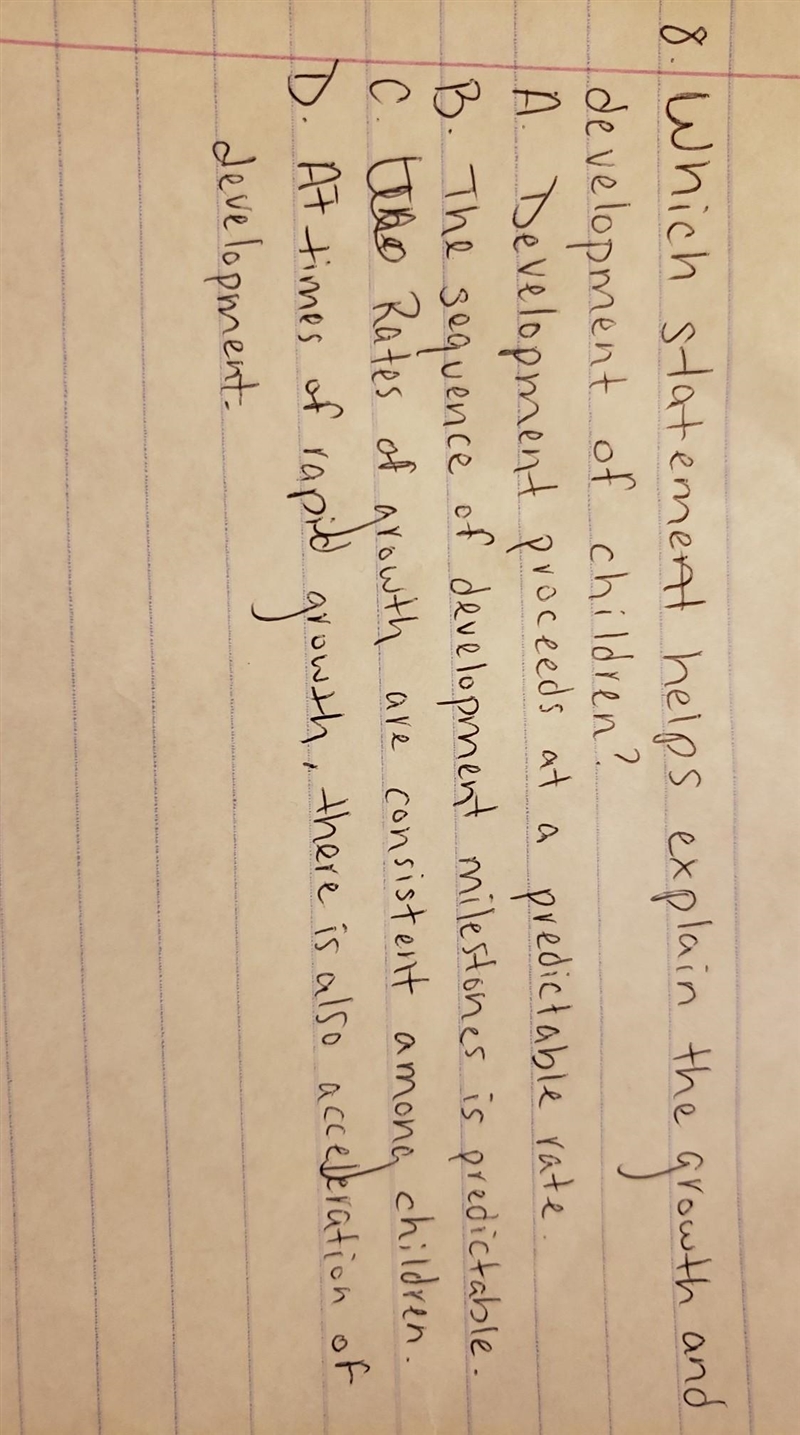 8. Which statement helps explain the growth and
development of children?
A. Development proceeds at a predictable rate.
B. The sequence of development milestones is predictable.
C. Rates of growth are consistent among children.
D. At times of rapid growth, there is also acceleration of
development.